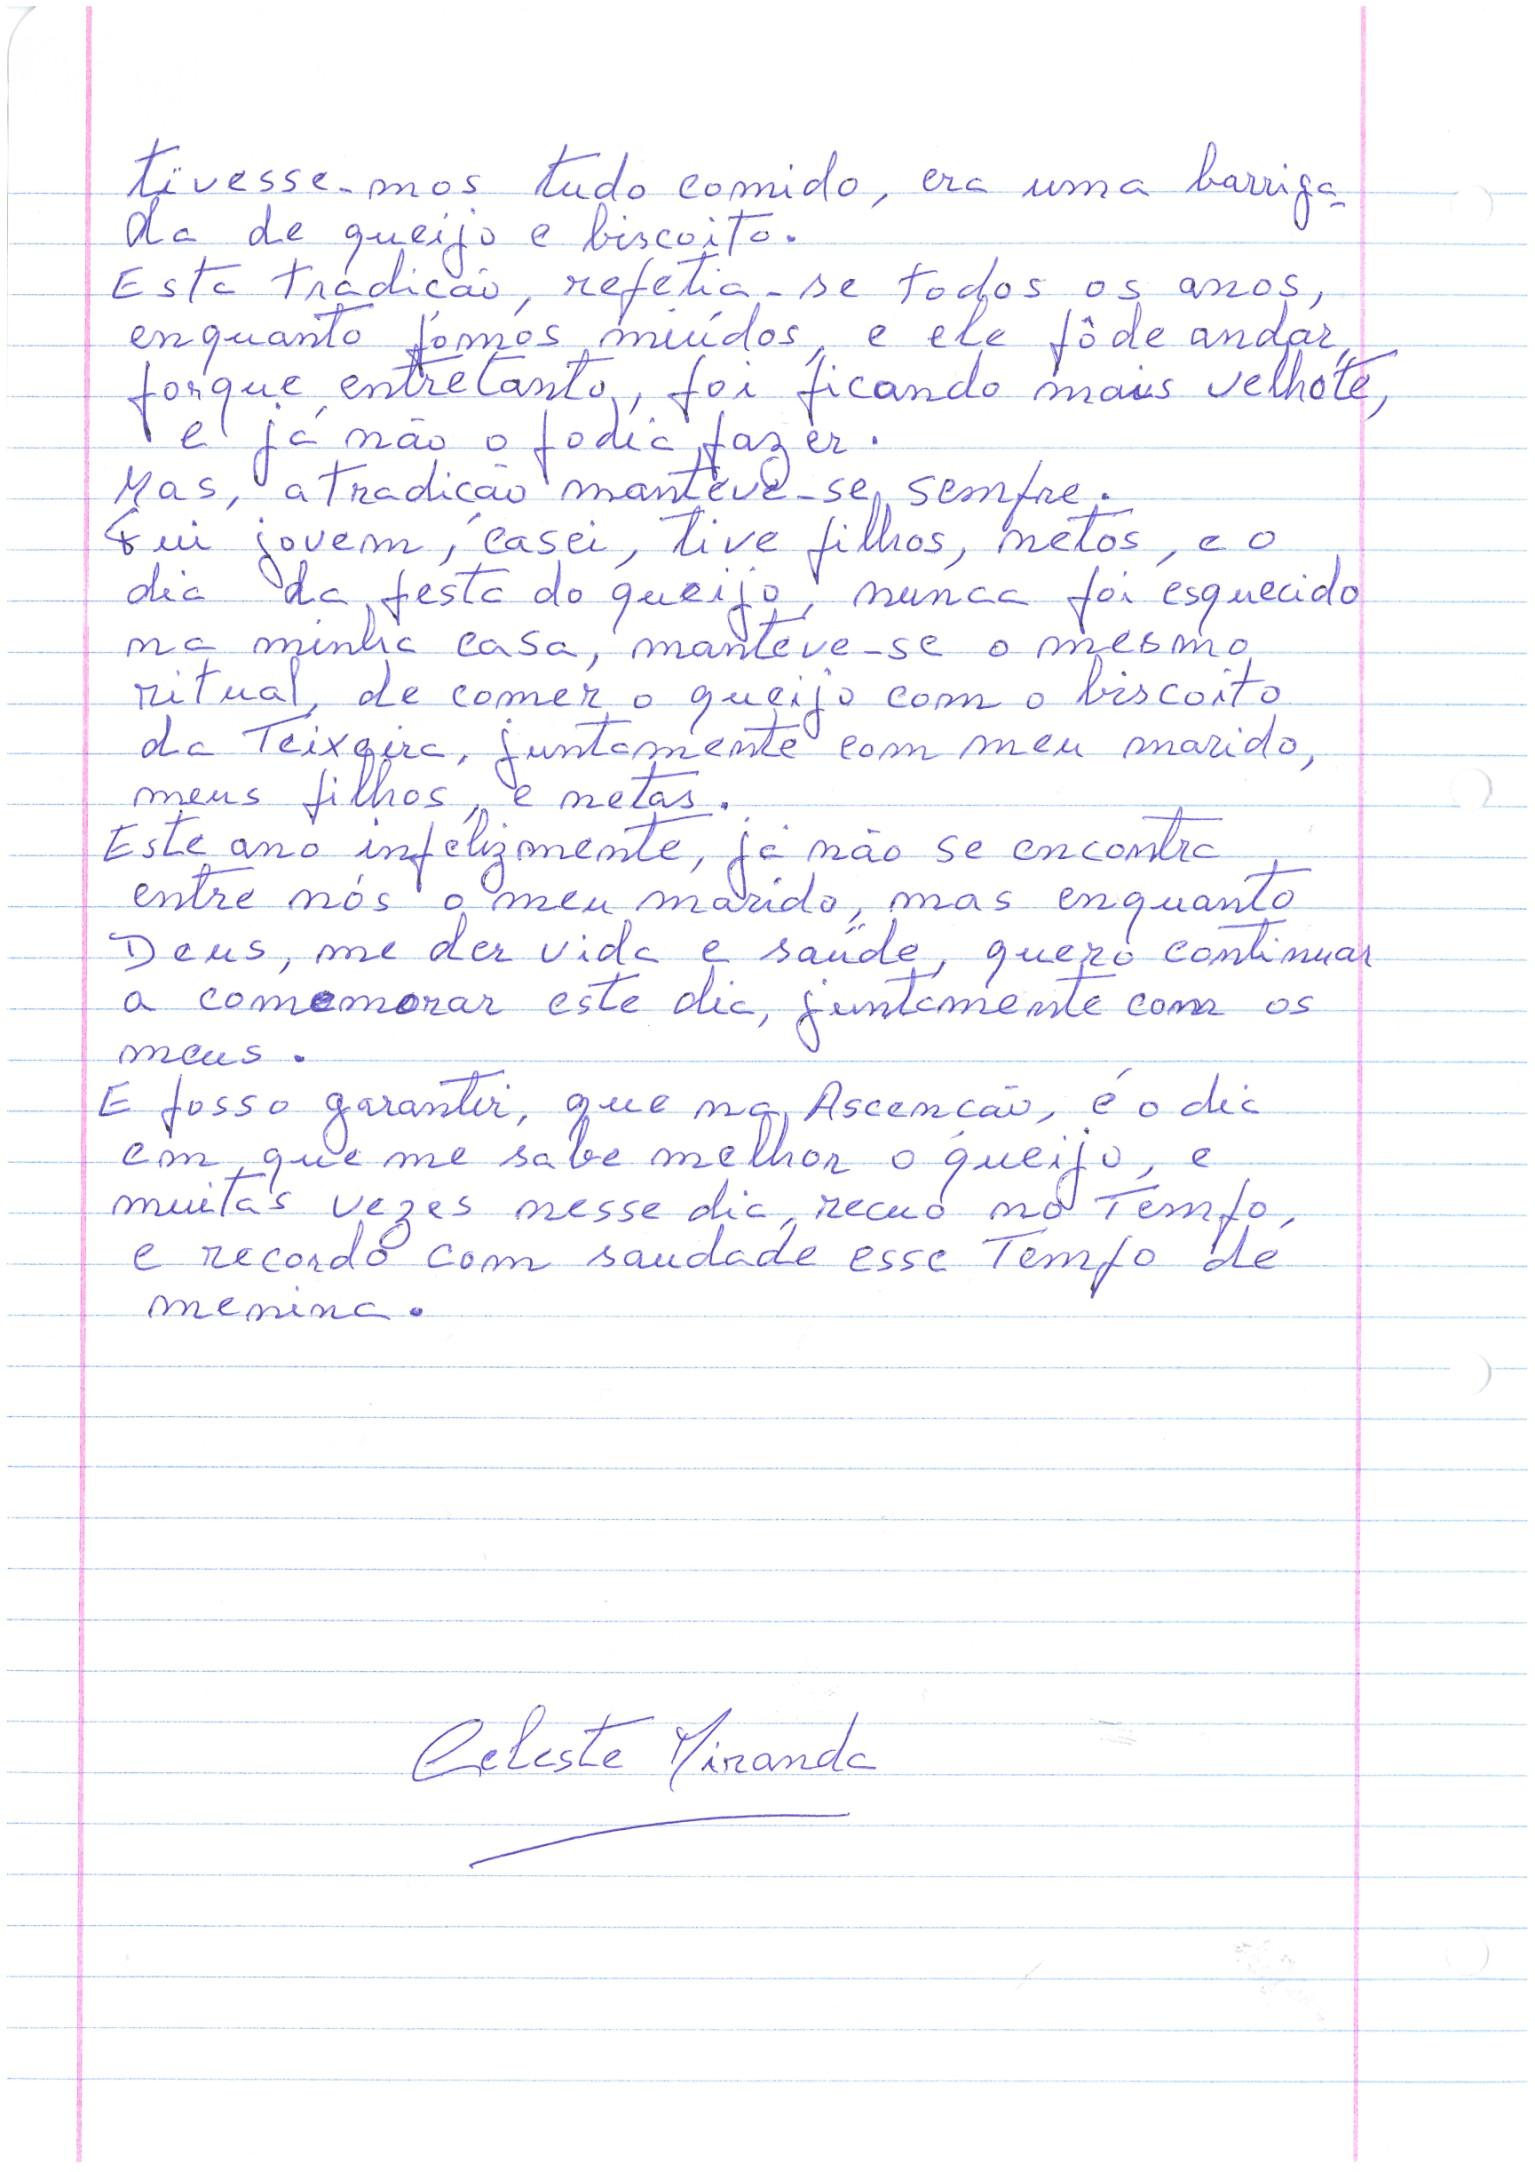 tivesse-mos tudo comido, era uma barriga-
da de queijo e biscoito.
Esta tradição, repetia-se todos os anos,
enquanto fomos miúdos, e ele pôde andar,
porque entretanto, foi ficando mais velhote,
e já não o podia fazer.
Mas, a tradição manteve-se, sempre.
Fui jovem, casei, tive filhos, netos, e o
dia da festa do queijo, nunca foi esquecido
na minha casa, manteve-se o mesmo
ritual, de comer o queijo com o biscoito
da Teixeira, juntamente com meu marido,
meus filhos, e netas.
Este ano infelizmente, já não se encontra
entre nós o meu marido, mas enquanto
Deus, me der vida e saúde, quero continuar
a comemorar este dia, juntamente com os
meus.
E posso garantir, que na Ascenção, é o dia
em que me sabe melhor o queijo, e
muitas vezes nesse dia, recuo no Tempo,
e recordo com saudade esse Tempo de
menina.
Celeste Miranda